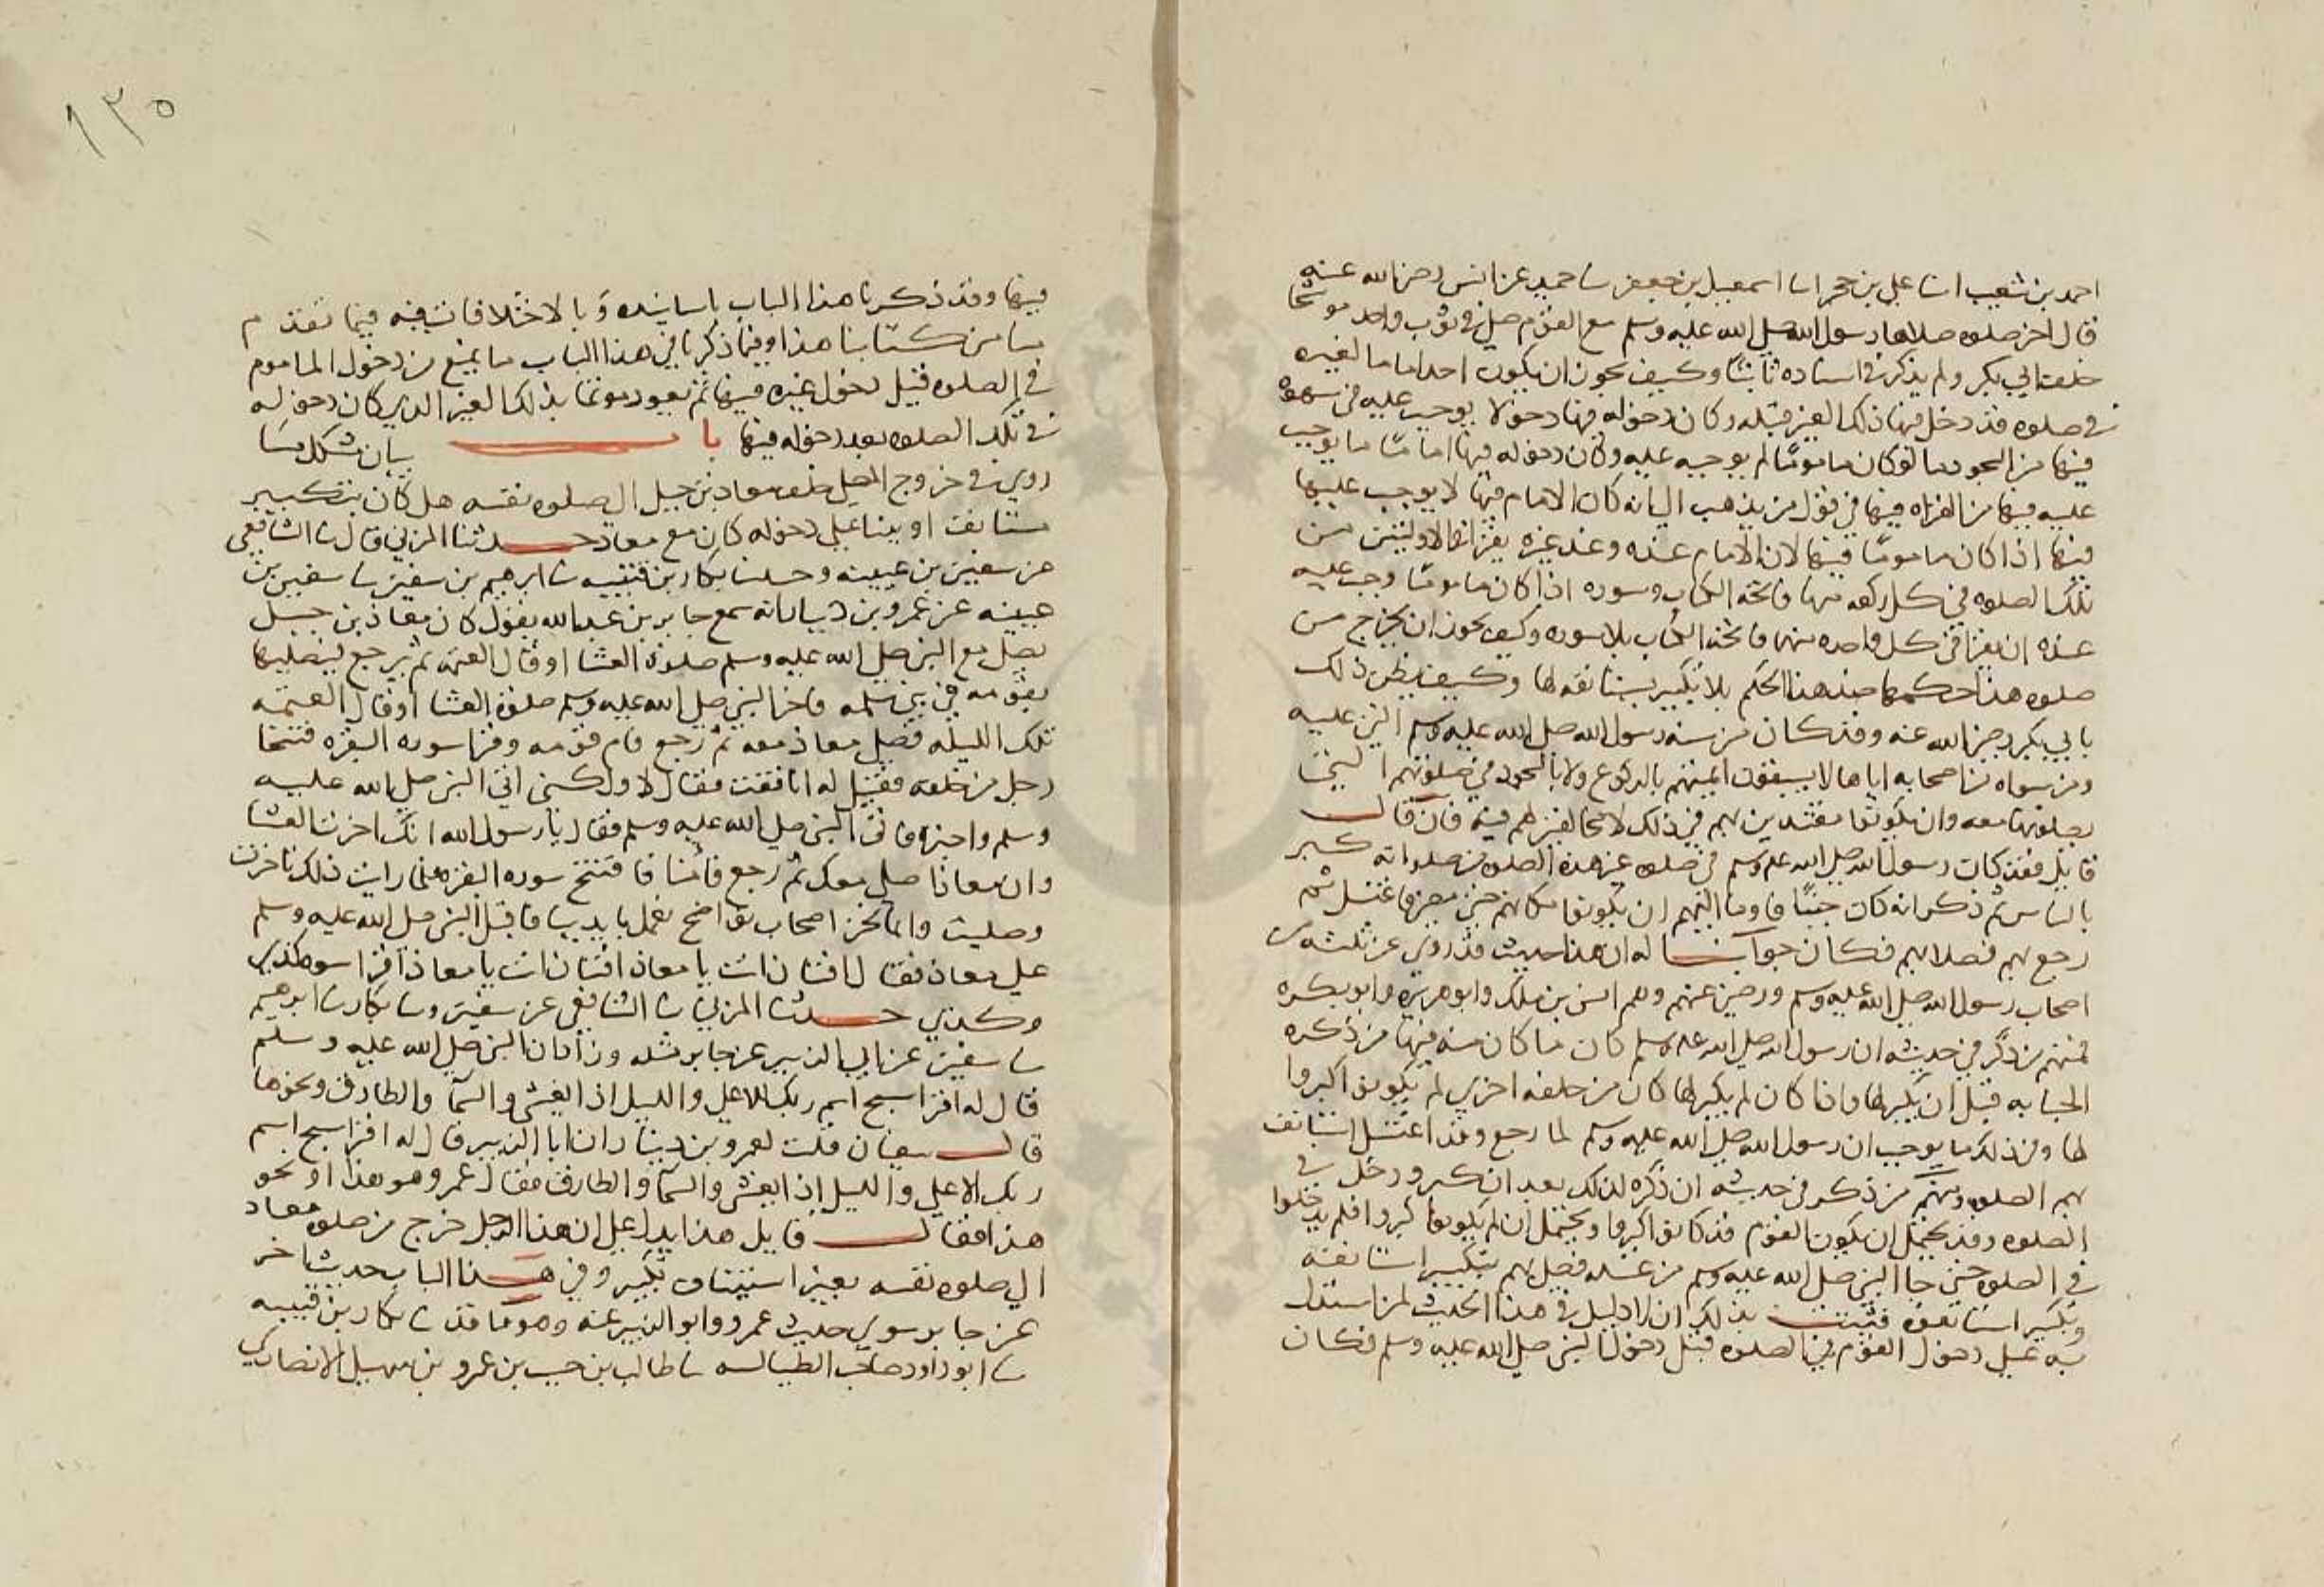 احمد بن شعيب انا علي بن حجر انا اسمعيل بن جعفر نا حميد عن انس رضي الله عنه
قال اخر صلوه صلاها رسول الله صلى الله عليه وسلم مع القوم صلى في ثوب واحد موشحا
خلف ابي بكر ولم يذكر في اسناده ثابتا وكيف يجوز ان يكون احد اماما لغيره
في صلوه قد دخل فيها ذلك الغير قبله وكان دخوله فيها دخولا يوجب عليه في سهوه
فيها من السجود ما لو كان ماموما لم يوجبه عليه وكان دخوله فيها اماما ما يوجب
عليه فيها من القراه فيها في قول من يذهب الى انه كان الامام فيها لا يوجب عليها
فيها اذا كان ماموما فيها لان الامام عنده وعند غيره يقرا في الاوليين من
تلك الصلوه في كل ركعه منها فاتحه الكتاب وسوره اذا كان ماموما وجب عليه
عنده ان يقرا في كل واحده منهما فاتحه الكتاب بلا سوره وكيف يجوز ان يخرج من
صلوه هذا حكمها ضد هذا الحكم بلا تكبير يستانفه لها وكيف يظن ذلك
بابي بكر رضي الله عنه وقد كان من سنه رسول الله صلى الله عليه وسلم التي علمه
ومن سواه من اصحابه اياها لا يسبقون ايمتهم بالركوع ولا بالسجود في صلوتهم التي
يصلونها معه وان يكونوا مقتدين بهم في ذلك لا مخالفين لهم فيه فان قال
قايل فقد كان رسول الله صلى الله عليه وسلم في صلوه غير هذه الصلوه من صلواته كبر
بالناس ثم ذكر انه كان جنبا فاومأ اليهم ان يكونوا مكانهم حتى مضى فاغتسل ثم
رجع بهم فصلا بهم فكان جوابنا له ان هذا حديث قد روي عن ثلثه من
اصحاب رسول الله صلى الله عليه وسلم ورضي عنهم وهم انس بن ملك وابو هريره وابو بكره
فمنهم من ذكر في حديثه ان رسول الله صلى الله عليه وسلم كان ما كان منه فيها من ذكره
الجنابه قبل ان يكبر لها واذا كان لم يكبر لها كان من خلفه احرى لم يكونوا كبروا
لها وفي ذلك ما يوجب ان رسول الله صلى الله عليه وسلم لما رجع وقد اغتسل استانف
بهم الصلوه ومنهم من ذكر في حديثه ان ذكره لذلك بعد ان كبر ودخل في
الصلوه وقد يحتمل ان يكون القوم قد كانوا كبروا ويحتمل ان لم يكونوا كبروا فلم يدخلوا
في الصلوه حتى جا النبي صلى الله عليه وسلم من غسله فصلى بهم بتكبير استانفه
وتكبير استانفوه فثبت بذلك ان لا دليل في هذا الحديث لمن استدل
به على دخول القوم في الصلوه قبل دخول النبي صلى الله عليه وسلم فكان
١٣٥
فيها وقد ذكرنا هذا الباب باسانيده وبالاختلافات فيه فيما تقدم
منا من كتابنا هذا وفيما ذكرنا في هذا الباب ما يمنع من دخول الماموم
في الصلوه قبل دخول غيره فيها ثم يعود موتما بذلك الغير الذي كان دخوله
في تلك الصلوه بعد دخوله فيها باب بيان مشكل ما
روي في خروج المصلي خلف معاذ بن جبل الى صلوه نفسه هل كان بتكبير
مستانف او بنا على دخوله كان مع معاذ حدثنا المزني قال نا الشافعي
عن سفين بن عيينه وحدثنا بكار بن قتيبه نا ابرهيم بن سفين نا سفين بن
عيينه عن عمرو بن دينار انه سمع جابر بن عبد الله يقول كان معاذ بن جبل
يصلي مع النبي صلى الله عليه وسلم صلوه العشا او قال العتمه ثم يرجع ليصليها
بقومه في بني سلمه فاخر النبي صلى الله عليه وسلم صلوه العشا او قال العتمه
تلك الليله فصلى معاذ معه ثم رجع فام قومه وقرا سوره البقره فتنحا
رجل من خلفه فقيل له انافقت فقال لا ولكني اتي النبي صلى الله عليه
وسلم واخبره فاتى النبي صلى الله عليه وسلم فقال يا رسول الله انك اخرت العشا
وان معاذا صلى معك ثم رجع فامنا فافتتح سوره البقره فلما رايت ذلك تاخرت
وصليت وانما نحن اصحاب نواضح نعمل بايدينا فاقبل النبي صلى الله عليه وسلم
على معاذ فقال افتان انت يا معاذ افتان انت يا معاذ اقرا سوره كذي
وكذي حدثنا المزني نا الشافعي عن سفين ونا بكار نا ابرهيم
نا سفين عن ابي الزبير عن جابر مثله وزاد ان النبي صلى الله عليه وسلم
قال له اقرا سبح اسم ربك الاعلى والليل اذا يغشى والسما والطارق ونحوها
قال سفيان فقلت لعمرو بن دينار ان ابا الزبير قال له اقرا سبح اسم
ربك الاعلى والليل اذا يغشى والسما والطارق فقال عمرو هو هذا او نحو
هذا فقال قايل هذا يدل على ان هذا الرجل خرج من صلوه معاذ
الى صلوه نفسه بغير استيناف تكبير وفي هذا الباب حديث اخر
عن جابر سوى حديث عمرو وابو الزبير عنه وهو ما قد نا بكار بن قتيبه
نا ابو داود صاحب الطيالسه نا طالب بن حبيب بن عمرو بن سهيل الانصاري